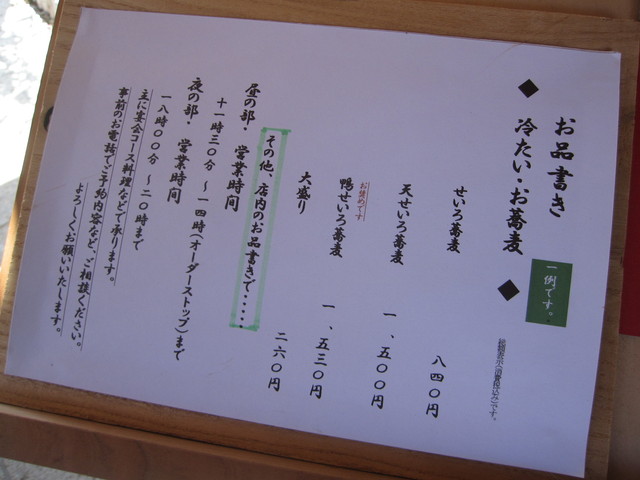 お品書き
一例です。
◆ 冷たい・お蕎麦 ◆
総額表示(消費税込み)です。
せいろ蕎麦 八四〇円
天せいろ蕎麦 一、五〇〇円
お奨めです
鴨せいろ蕎麦 一、五三〇円
大盛り 二六〇円
その他、店内のお品書きで・・・・
昼の部・営業時間
十一時三〇分 ～一四時(オーダーストップ)まで
夜の部・営業時間
一八時〇〇分 ～二〇時まで
主に宴会コース料理などで承ります。
事前のお電話でご予約内容など、ご相談ください。
よろしくお願いいたします。